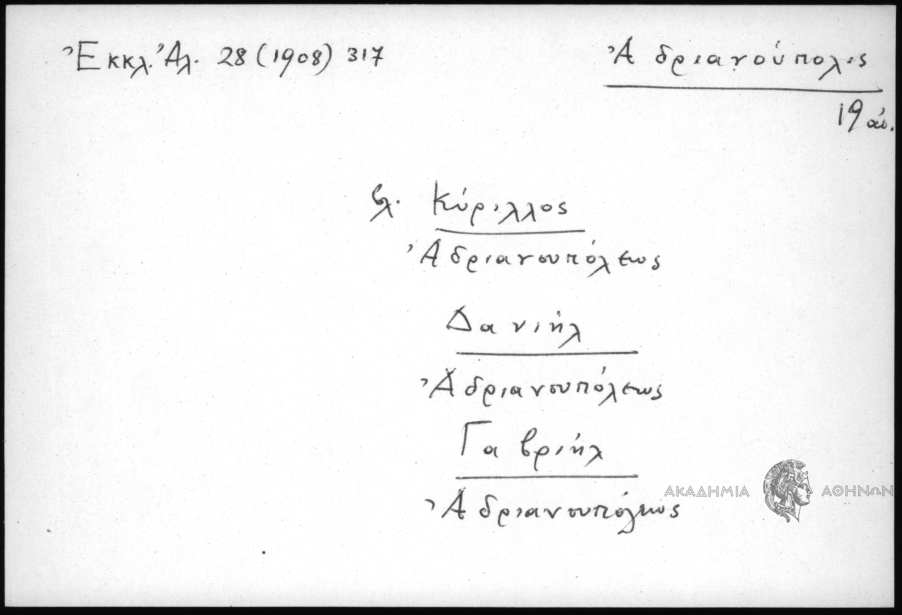 Ἐκκλ. Ἀλ. 28 (1908) 317
Ἀδριανούπολις
19 αἰ.
βλ. Κύριλλος
Ἀδριανουπόλεως
Δανιήλ
Ἀδριανουπόλεως
Γαβριήλ
Ἀδριανουπόλεως
ΑΚΑΔΗΜΙΑ ΑΘΗΝΩΝ